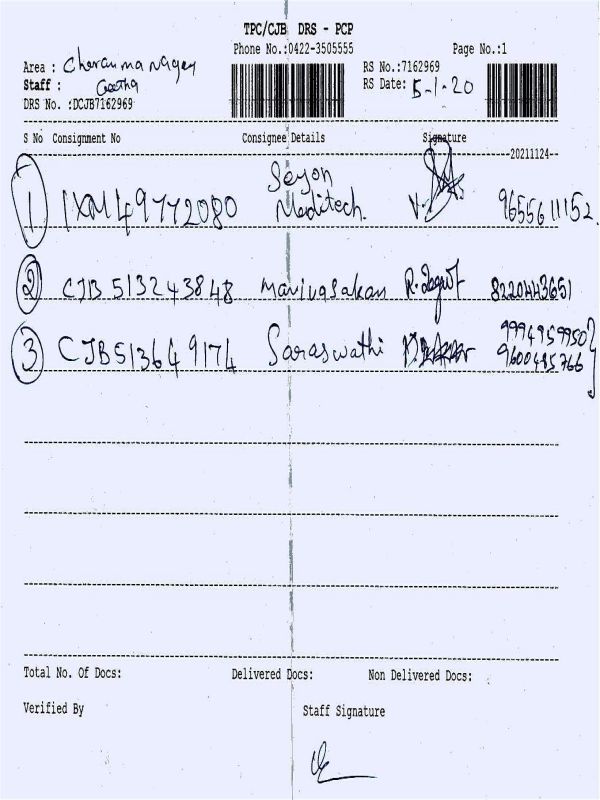 TPC/CJB DRS - PCP
Phone No.:0422-3505555 Page No.:1
Area : Cheranma nager RS No.:7162969
Staff : Geetha RS Date: 5-1-20
DRS No. :DCJB7162969
S No Consignment No Consignee Details Signature
20211124
1 IXM149772080 Seyon Meditech. 9655611152
2 CJB 513243848 manivasakam 8220443651
3 CJB513649174 Saraswathi 9994959950
9600485766
Total No. Of Docs: Delivered Docs: Non Delivered Docs:
Verified By Staff Signature